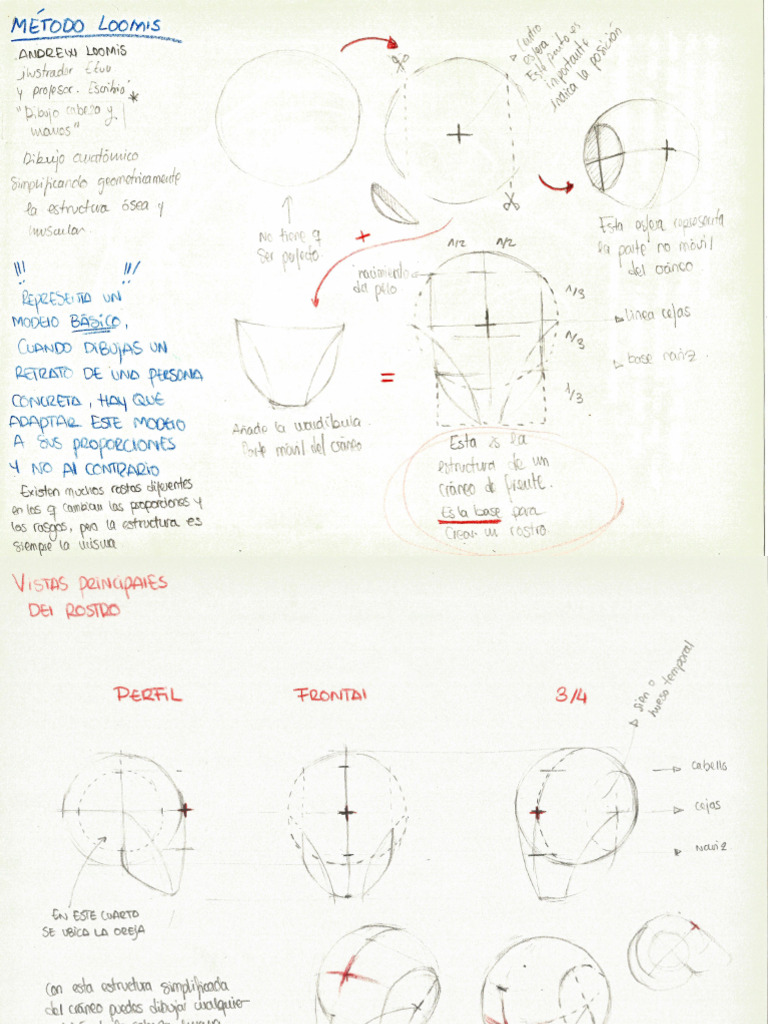 MÉTODO LOOMIS
.ANDREW LOOMIS
ilustrador EEUU
y profesor. Escribió
"Dibujo cabeza y
manos"*
Dibujo anatómico
simplificando geometricamente
la estructura ósea y
muscular.
!!! !!!
REPRESENTA UN
MODELO BÁSICO,
CUANDO DIBUJAS UN
RETRATO DE UNA PERSONA
CONCRETA, HAY QUE
ADAPTAR ESTE MODELO
A SUS PROPORCIONES
Y NO AL CONTRARIO
Existen muchos rostros diferentes
en los q cambian las proporciones y
los rasgos, pero la estructura es
siempre la misma
No tiene q
ser perfecto
Centro
esfera
Este punto es
importante
indica la posición
Esta esfera representa
la parte no móvil
del cráneo
+
Añado la mandíbula.
Parte móvil del cráneo
=
nacimiento
del pelo
1/2 1/2
1/3
1/3
1/3
linea cejas
base nariz.
Esta es la
estructura de un
cráneo de frente.
Es la base para
crear un rostro.
VISTAS PRINCIPALES
DEL ROSTRO
PERFIL
FRONTAL
3/4
sien o
hueso temporal
cabello
cejas
nariz
EN ESTE CUARTO
SE UBICA LA OREJA
Con esta estructura simplificada
del cráneo puedes dibujar cualquier